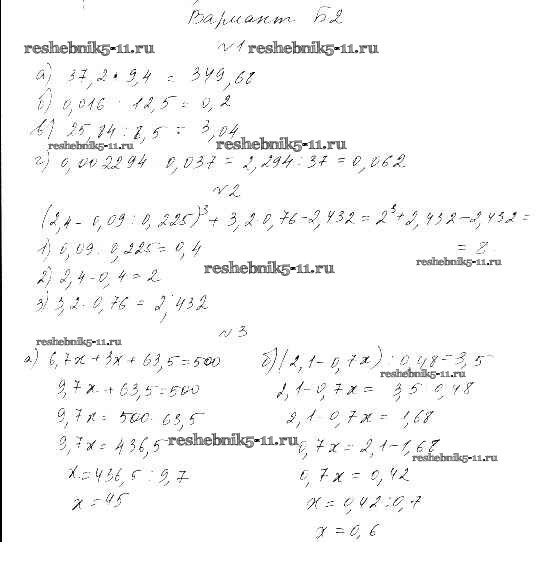 Вариант Б2
№1
reshebnik5-11.ru reshebnik5-11.ru
а) 37,2 · 9,4 = 349,68
б) 0,016 · 12,5 = 0,2
в) 25,84 : 8,5 = 3,04
reshebnik5-11.ru reshebnik5-11.ru
г) 0,002294 0,037 = 2,294 : 37 = 0,062
№2
(2,4 - 0,09 : 0,225)³ + 3,2 · 0,76 - 2,432 = 2³ + 2,432 - 2,432 =
= 8
1) 0,09 : 0,225 = 0,4
reshebnik5-11.ru
2) 2,4 - 0,4 = 2
reshebnik5-11.ru
3) 3,2 · 0,76 = 2,432
№3
reshebnik5-11.ru
а) 6,7x + 3x + 63,5 = 500
9,7x + 63,5 = 500
9,7x = 500 63,5
9,7x = 436,5
x = 436,5 : 9,7
x = 45
б) (2,1 - 0,7x) : 0,48 = 3,5
reshebnik5-11.ru
2,1 - 0,7x = 3,5 · 0,48
2,1 - 0,7x = 1,68
reshebnik5-11.ru
0,7x = 2,1 - 1,68
reshebnik5-11.ru
0,7x = 0,42
x = 0,42 : 0,7
x = 0,6